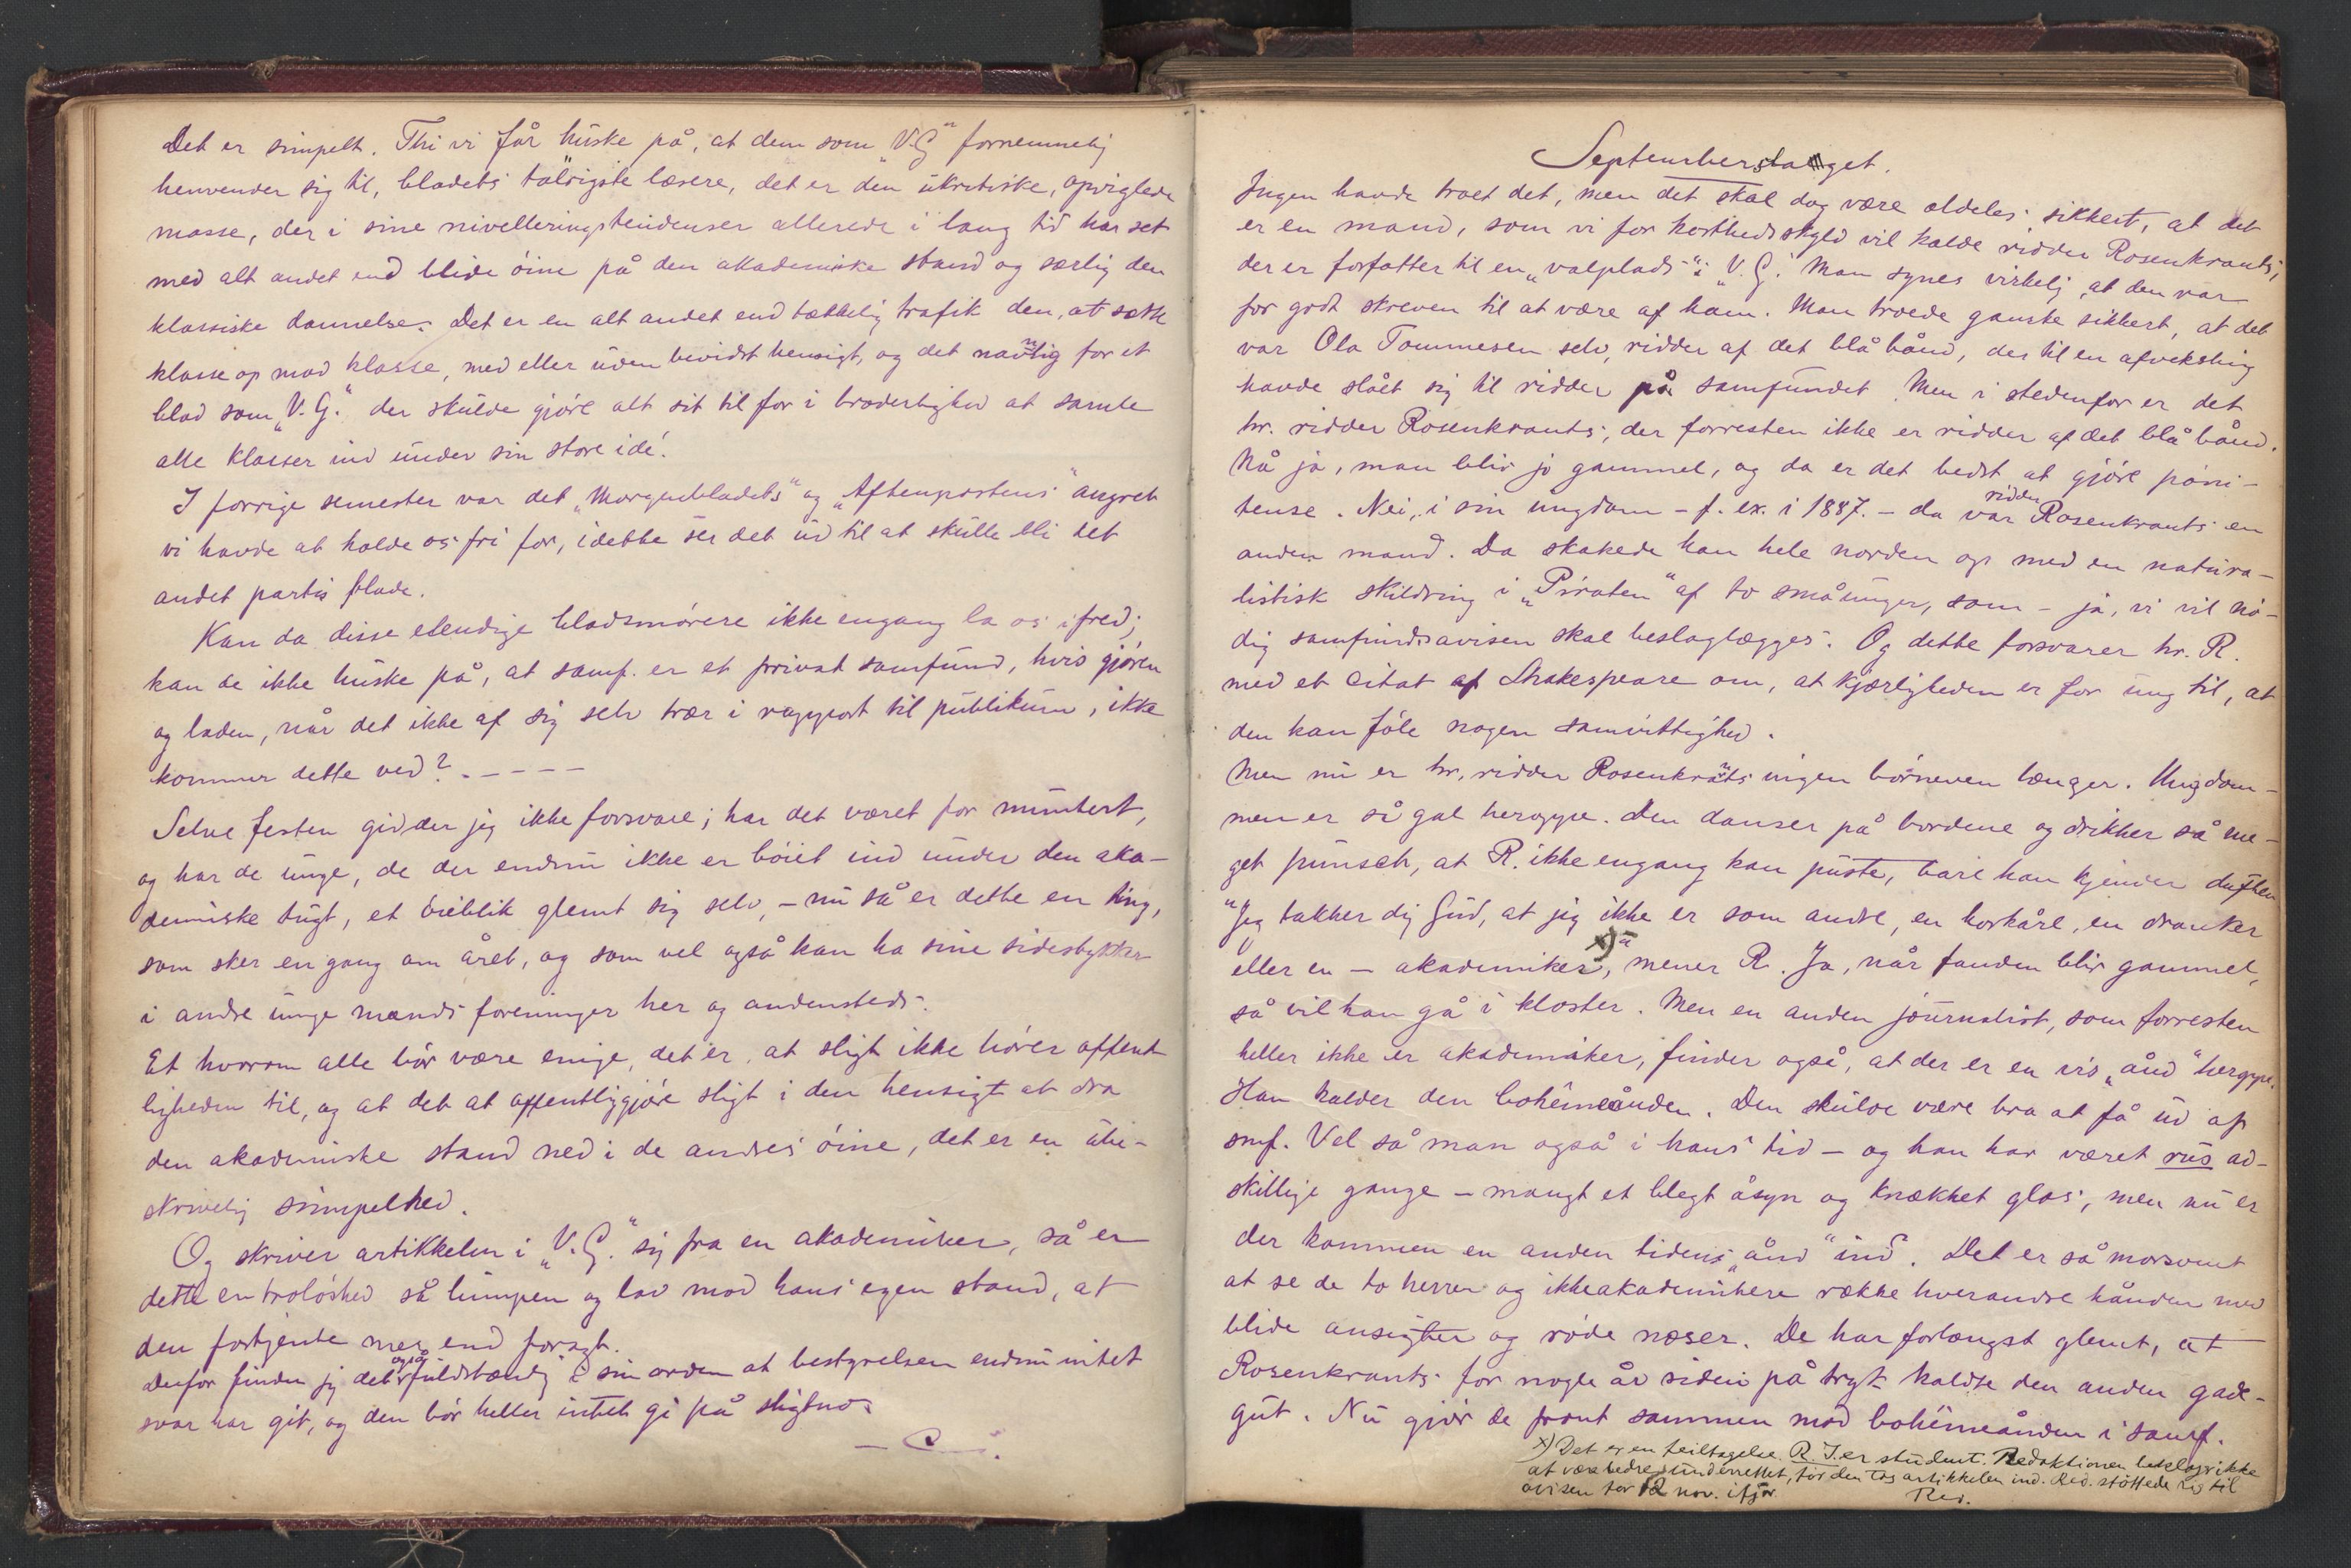 Det er simpelt. Thi vi får huske på, at dem som „V.G“ fornemmelig
henvender sig til, bladets talrigste læsere, det er den ukritiske, opviglede
masse, der i sine nivelleringstendenser allerede i lang tid har set
med alt andet end blide öine på den akademiske stand og særlig den
klassiske dannelse. Det er en alt andet end tækkelig trafik den, at sætte
klasse op mod klasse, med eller uden bevidst hensigt, og det navnlig for et
blad som „V.G.“ der skulde gjöre alt sit til for i broderlighed at samle
alle klasser ind under sin store idé!
I forrige semester var det „Morgenbladets“ og „Aftenpostens“ angreb
vi havde at holde os fri for, i dette ser det ud til at skulle bli det
andet partis blade.
Kan da disse elendige bladsmörere ikke engang la os i fred;
kan de ikke huske på, at samf. er et privat samfund, hvis gjören
og laden, når det ikke af sig selv trær i rapport til publikum, ikke
kommer dette ved? - - - - -
Selve festen gidder jeg ikke forsvare; har det været for muntert,
og har de unge, de der endnu ikke er böiet ind under den aka-
demiske tugt, et öieblik glemt sig selv, - nu så er dette en ting,
som sker en gang om året, og som vel også kan ha sine sidestykker
i andre unge mænds foreninger her og andensteds.
Et hvorom alle bör være enige, det er, at sligt ikke hörer offent-
ligheden til, og at det at offentliggjöre sligt i den hensigt at dra
den akademiske stand ned i de andres öine, det er en ube-
skrivelig simpelhed.
Og skriver artikkelen i „V.G.“ sig fra en akademiker, så er
dette en trolöshed så lumpen og lav mod hans egen stand, at
den fortjente mer end foragt.
Derfor finder jeg det også fuldstændig i sin orden at bestyrelsen endnu intet
svar har git, og den bör heller intet gi på sligt
Septemberslaget.
Ingen havde troet det, men det skal dog være aldeles sikkert, at det
er en mand, som vi for korthedsskyld vil kalde ridder Rosenkrants,
der er forfatter til en „valplads“ i „V.G.“ Man synes virkelig, at den var
for godt skreven til at være af ham. Man troede ganske sikkert, at det
var Ola Tommesen selv, ridder af det blå bånd, der til en afveksling
havde slået sig til ridder på samfundet. Men i stedenfor er det
hr. ridder Rosenkrants, der forresten ikke er ridder af det blå bånd.
Nå ja, man blir jo gammel, og da er det bedst at gjöre pöni-
tense. Nei, i sin ungdom - f. ex. i 1887. - da var ridder Rosenkrants en
anden mand. Da skakede han hele norden op med en natura-
listisk skildring i „Piraten“ af to småunger, som - ja, vi vil nö-
dig samfundsavisen skal beslaglægges. Og dette forsvarer hr. R.
med et citat af Shakespeare om, at kjærligheden er for ung til, at
den kan föle nogen samvittighed.
Men nu er hr. ridder Rosenkrants ingen börneven længer. Ungdom-
men er så gal heroppe. Den danser på bordene og drikker så me-
get punsch, at R. ikke engang kan puste, bare han kjender duften
„Jeg takker dig Gud, at jeg ikke er som andre, en horkarl, en dranker
eller en - akademiker x)“, mener R. Ja, når fanden blir gammel,
så vil han gå i kloster. Men en anden journalist, som forresten
heller ikke er akademiker, finder også, at der er en vis „ånd“ heroppe.
Han kalder den bohêmeånden. Den skulde være bra at få ud af
smf. Vel så man også i hans tid - og han har været rus ad-
skillige gange - mangt et blegt åsyn og knækket glas, men nu er
der kommen en anden tidens „ånd“ ind. Det er så morsomt
at se de to herrer og ikkeakademikere række hverandre hånden med
blide ansigter og röde næser. De har forlængst glemt, at
Rosenkrants for nogle år siden på tryk kaldte den anden gade-
gut. Nu gjör de front sammen mod bohêmeånden i samf.
x) Det er en feiltagelse. R. I. er student. Redaktionen beklager ikke
at være bedre underrettet, för den tog artikkelen ind. Red. stöttede sig til
avisen for 12 nov. ifjor.
Red.